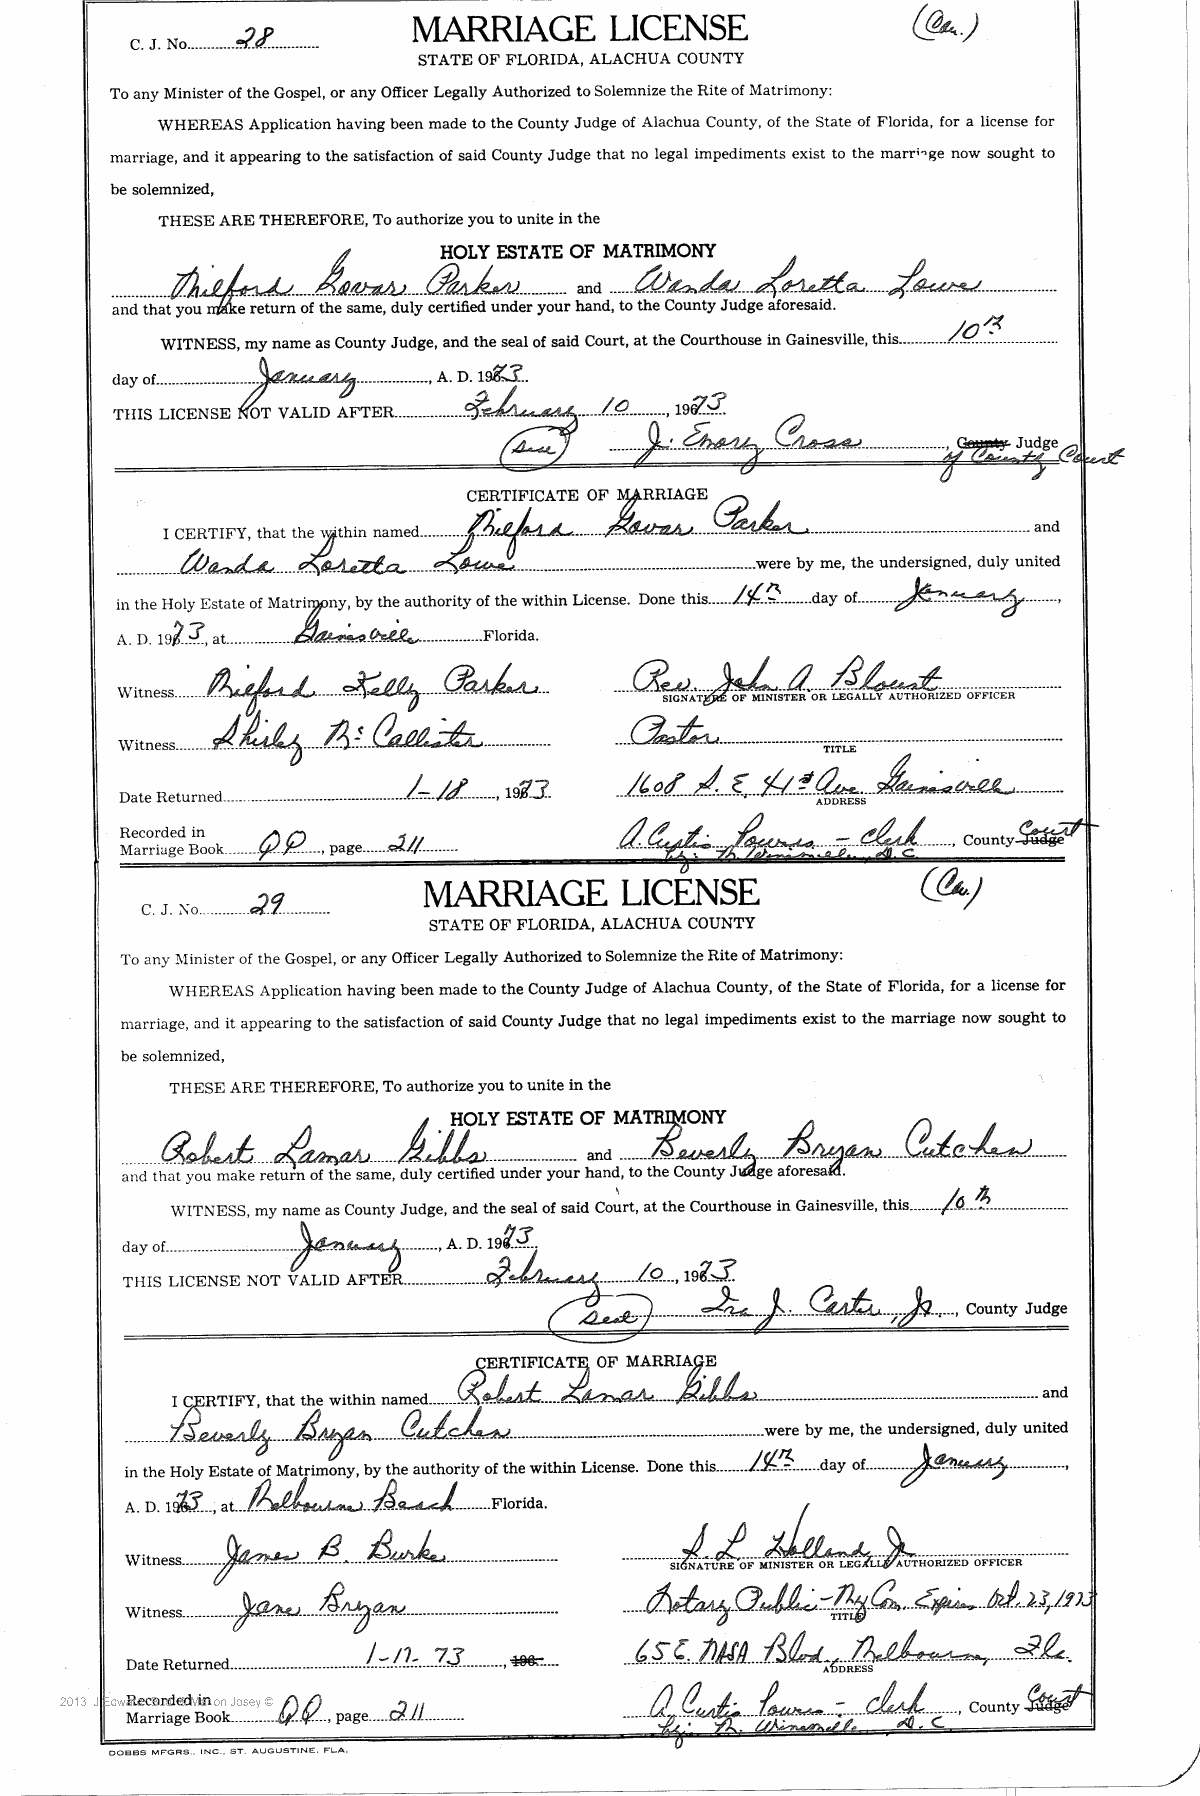 C. J. No. 28
MARRIAGE LICENSE
(Cau.)
STATE OF FLORIDA, ALACHUA COUNTY
To any Minister of the Gospel, or any Officer Legally Authorized to Solemnize the Rite of Matrimony:
WHEREAS Application having been made to the County Judge of Alachua County, of the State of Florida, for a license for
marriage, and it appearing to the satisfaction of said County Judge that no legal impediments exist to the marriage now sought to
be solemnized,
THESE ARE THEREFORE, To authorize you to unite in the
HOLY ESTATE OF MATRIMONY
Milford Govar Parker and Wanda Loretta Lowe
and that you make return of the same, duly certified under your hand, to the County Judge aforesaid.
WITNESS, my name as County Judge, and the seal of said Court, at the Courthouse in Gainesville, this 10th
day of January, A. D. 1973
THIS LICENSE NOT VALID AFTER February 10, 1973
(Seal) J. Emory Cross, County Judge
of County Court
CERTIFICATE OF MARRIAGE
I CERTIFY, that the within named Milford Govar Parker and
Wanda Loretta Lowe were by me, the undersigned, duly united
in the Holy Estate of Matrimony, by the authority of the within License. Done this 14th day of January,
A. D. 1973, at Gainsville Florida.
Witness Milford Kelly Parker Rev. John A. Blount
SIGNATURE OF MINISTER OR LEGALLY AUTHORIZED OFFICER
Witness Shirley McCallister Pastor
TITLE
Date Returned 1-18, 1973 1608 S. E. 41st Ave. Gainsville
ADDRESS
Recorded in
Marriage Book QQ, page 211 A. Curtis Powers - Clerk, County Judge Court
by: M. D.C.
C. J. No. 29
MARRIAGE LICENSE
(Cau.)
STATE OF FLORIDA, ALACHUA COUNTY
To any Minister of the Gospel, or any Officer Legally Authorized to Solemnize the Rite of Matrimony:
WHEREAS Application having been made to the County Judge of Alachua County, of the State of Florida, for a license for
marriage, and it appearing to the satisfaction of said County Judge that no legal impediments exist to the marriage now sought to
be solemnized,
THESE ARE THEREFORE, To authorize you to unite in the
HOLY ESTATE OF MATRIMONY
Robert Lamar Gibbs and Beverly Bryan Cutchen
and that you make return of the same, duly certified under your hand, to the County Judge aforesaid.
WITNESS, my name as County Judge, and the seal of said Court, at the Courthouse in Gainesville, this 10th
day of January, A. D. 1973
THIS LICENSE NOT VALID AFTER February 10, 1973
(Seal) Ira J. Carter, Jr., County Judge
CERTIFICATE OF MARRIAGE
I CERTIFY, that the within named Robert Lamar Gibbs and
Beverly Bryan Cutchen were by me, the undersigned, duly united
in the Holy Estate of Matrimony, by the authority of the within License. Done this 14th day of January,
A. D. 1973, at Melbourne Beach Florida.
Witness James B. Burke S. L. Holland, Jr.
SIGNATURE OF MINISTER OR LEGALLY AUTHORIZED OFFICER
Witness Jane Bryan Notary Public - My Com. Expires Oct. 23, 1973
TITLE
Date Returned 1-17-73, 196 65 E. NASA Blvd., Melbourne, Fla.
ADDRESS
2013 J Edward Josey ©
Recorded in
Marriage Book QQ, page 211 A. Curtis Powers - Clerk, County Judge Court
by: M. D.C.
DOBBS MFGRS., INC., ST. AUGUSTINE, FLA.